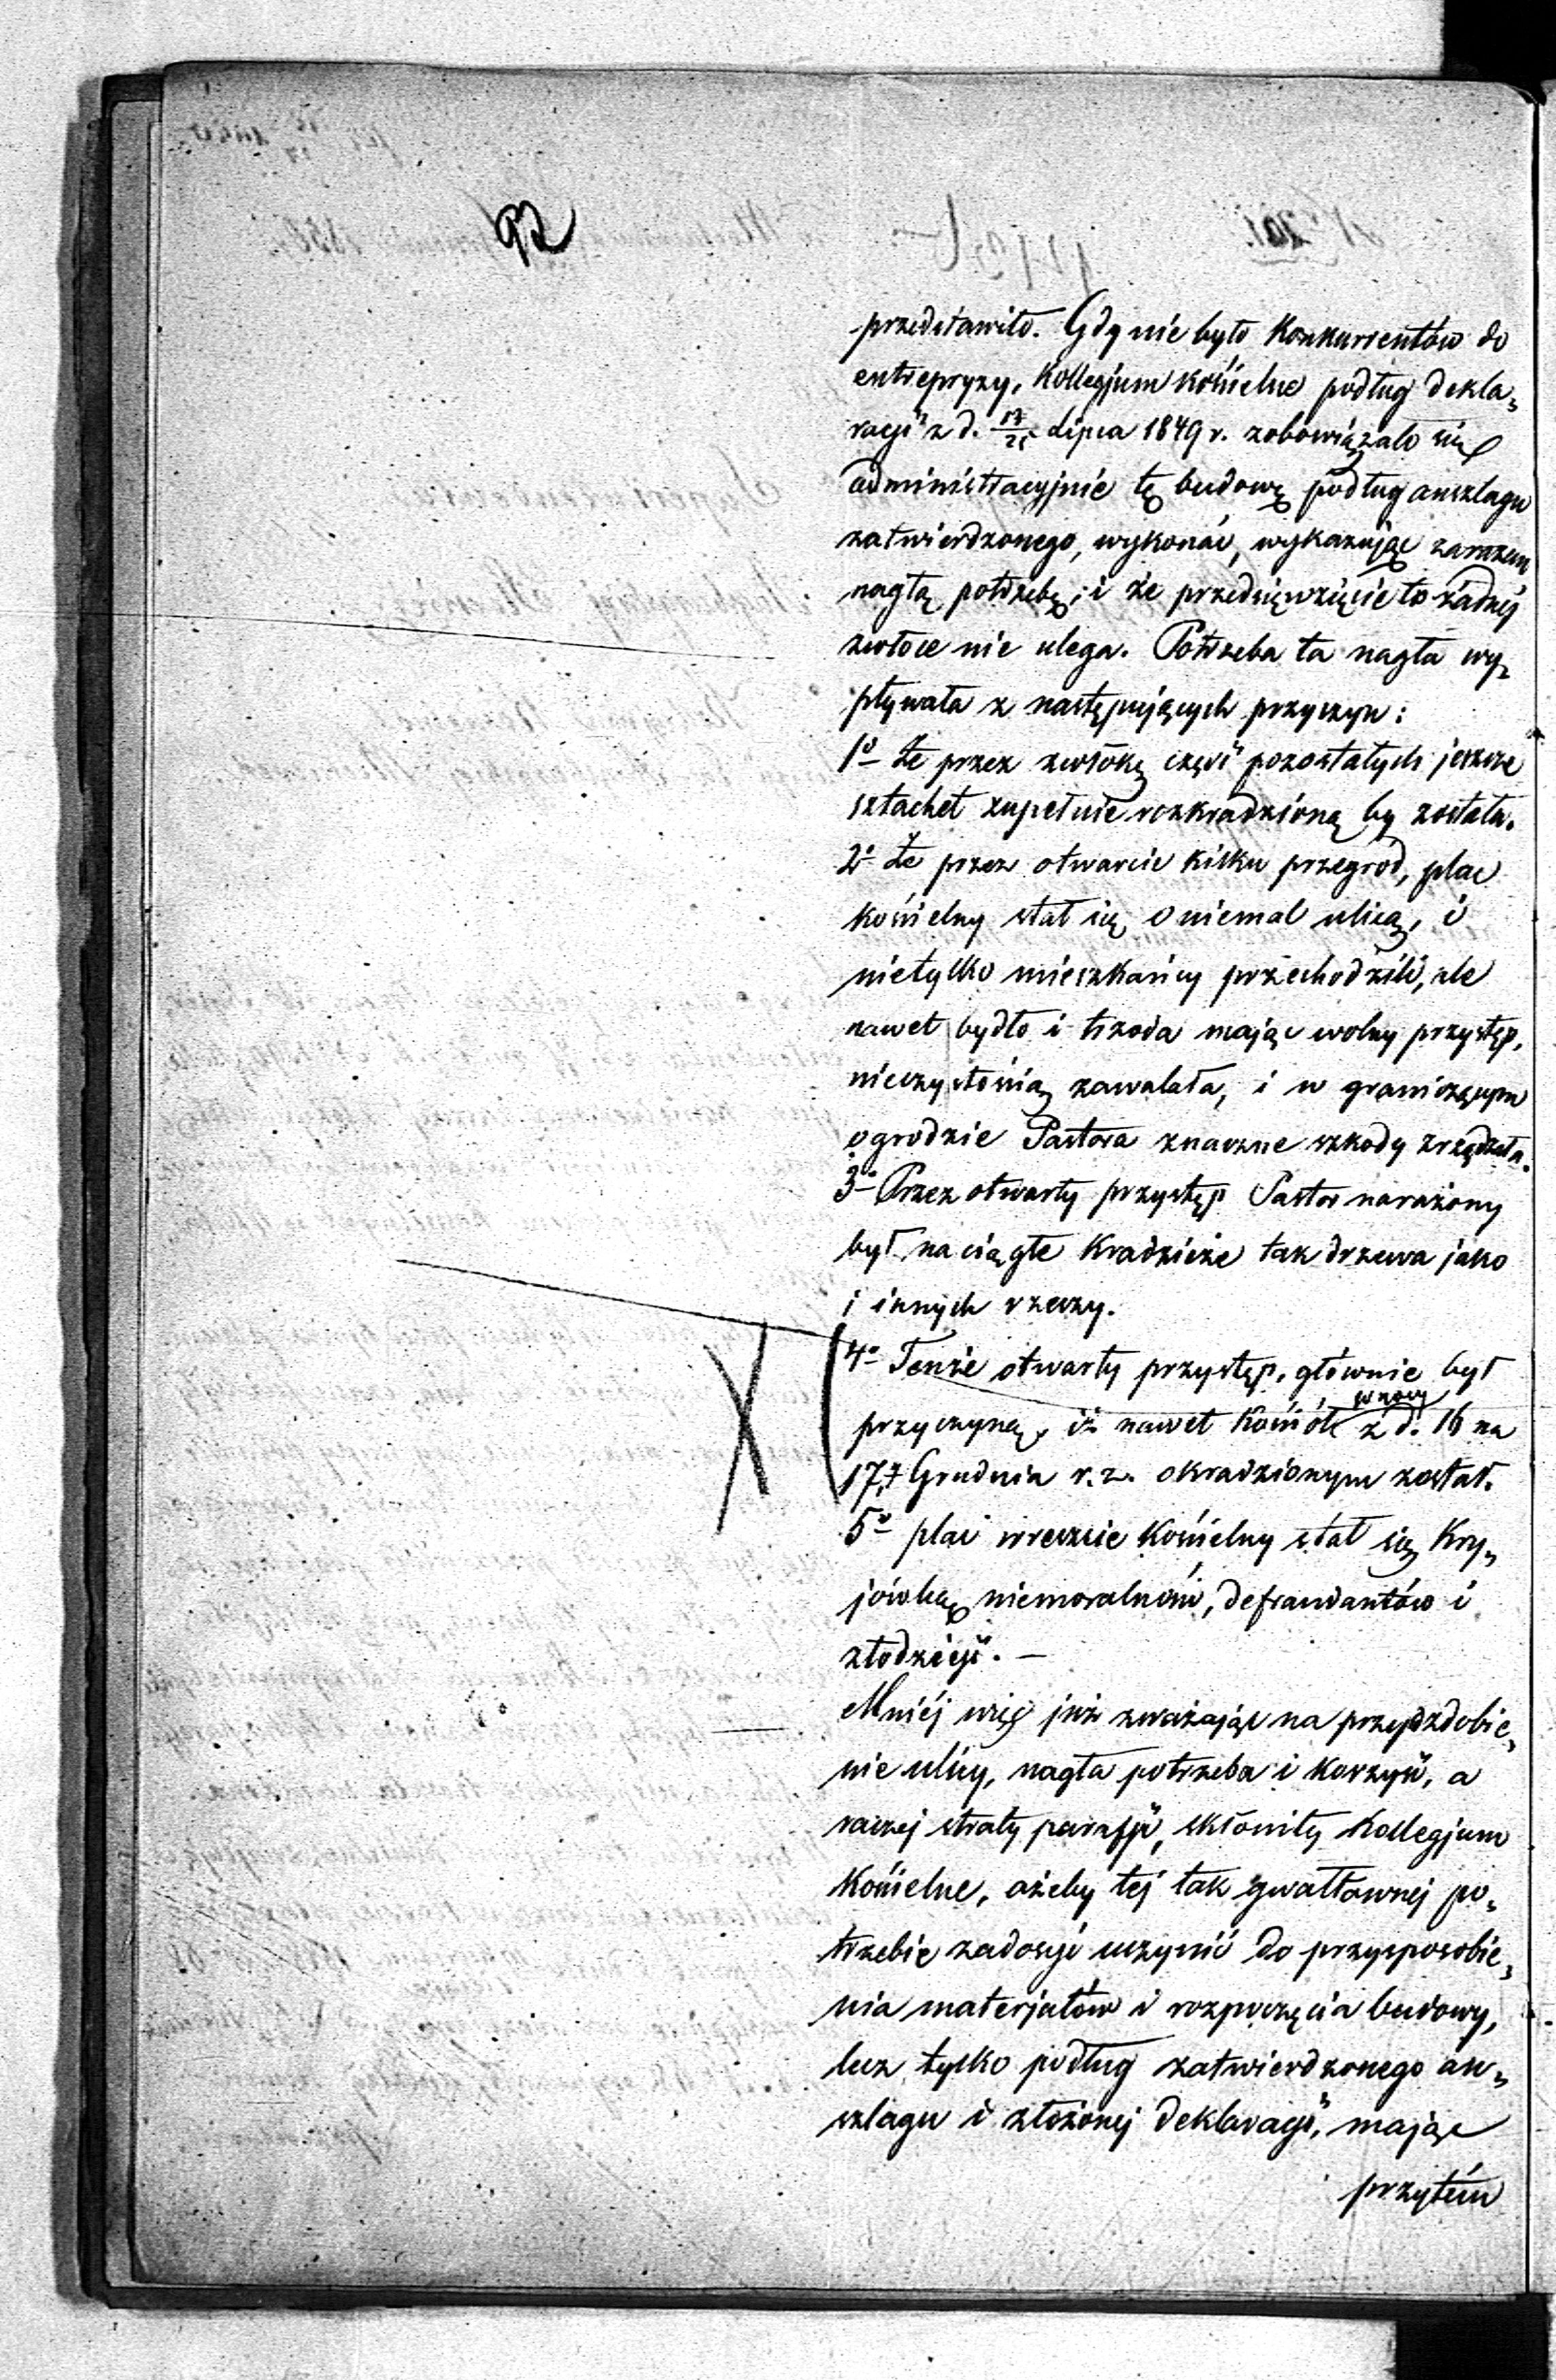 92
przedstawiło. Gdy nie było Konkurrentów do
entrepryzy, Kollegjum kościelne podług dekla„
racyi z d. 17/25 Lipca 1849 r. zobowiązało się
administracyjnie tę budowę podług anszlagu
zatwierdzonego, wykonać, wykazując zarazem
nagłą potrzebę, i że przedsięwzięcie to żadnej
zwłoce nie ulega. Potrzeba ta nagła wy„
pływała z następujących przyczyn:
1o Że przez zwłokę część pozostałych jeszcze
sztachet zupełnie rozkradzioną by została.
2o Że przez otwarcie kilku przegród, plac
kościelny stał się o niemal ulicą, i
nietylko mieszkańcy przechodzili, ale
nawet bydło i trzoda mając wolny przystęp,
nieczystością zawalała, i w graniczącym
ogrodzie Pastora znaczne szkody zrządzała.
3o Przez otwarty przystęp Pastor narażony
był na ciągłe Kradzieże tak drzewa jako
i innych rzeczy.
4o Tenże otwarty przystęp, głównie był
przyczyną, iż nawet Kościół w nocy z d. 16 na
17, Grudnia r. z. okradzionym został.
5o plac wreszcie Kościelny stał się Kry„
jówką niemoralności, defraudantów i
złodzieji. —
Mniéj więc już zważając na przyozdobie„
nie ulicy, nagła potrzeba i korzyść, a
raczej straty parafji, skłoniły Kollegjum
Kościelne, ażeby tej tak gwałtownej po„
trzebie zadosyć uczynić do przysposobie„
nia materjałów i rozpoczęcia budowy,
lecz tylko podług zatwierdzonego an„
szlagu i złożonej deklaracyi, mając
przytém